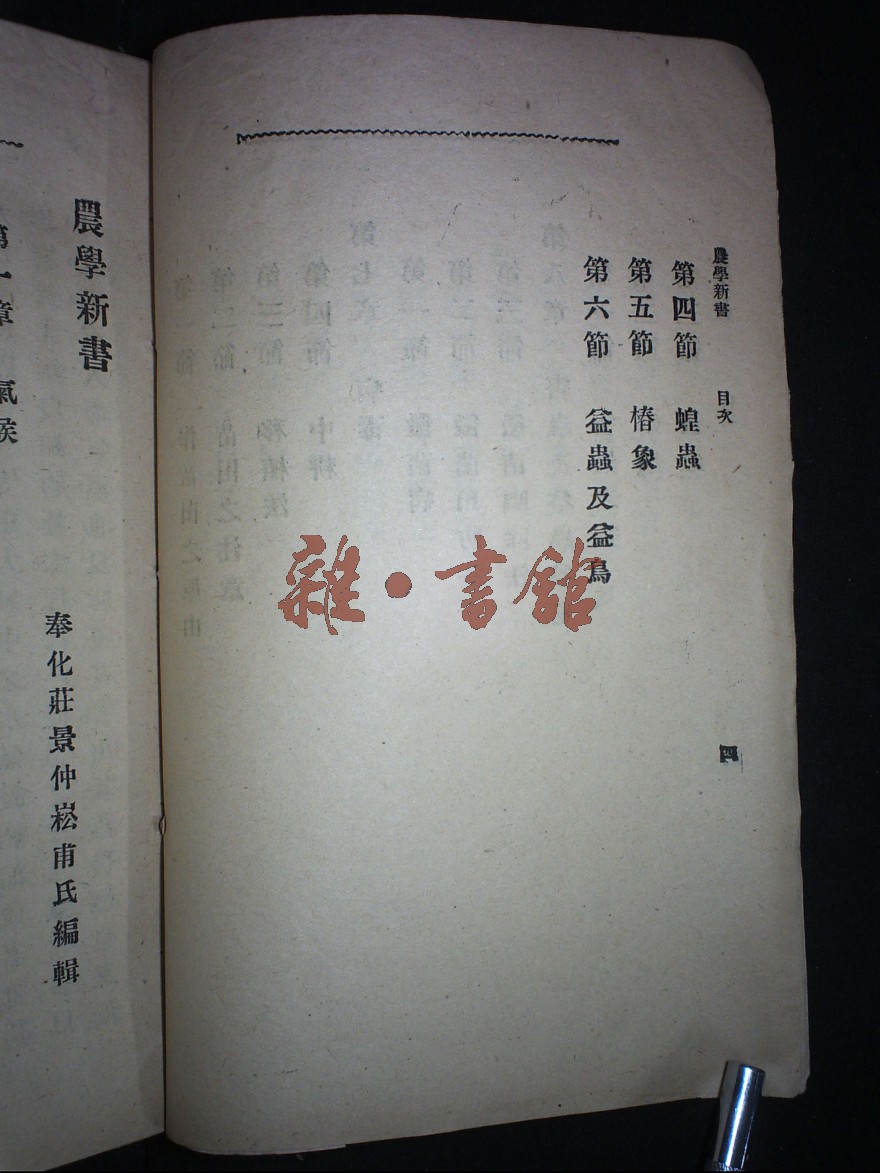 農學新書
目次
四
第四節 蝗蟲
第五節 椿象
第六節 益蟲及益鳥
雜·書館
農學新書
奉化莊景仲崧甫氏編輯
第一章 氣候